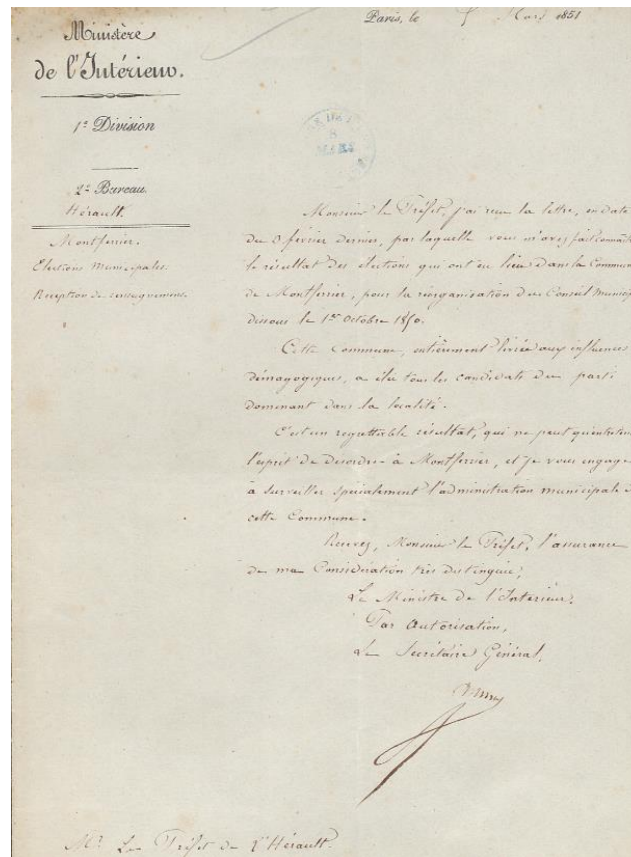 Ministère
de l'Intérieur.
1e Division
2e Bureau.
Hérault.
Montferrier.
Elections Municipales.
Reception de renseignemens.
Paris, le 5 Mars 1851
8
MARS
Monsieur le Préfet, j'ai reçu la lettre, en date
du 8 février dernier, par laquelle vous m'avez fait connaître
le résultat des élections qui ont eu lieu dans la Commune
de Montferrier, pour la réorganisation du Conseil Municip
dissous le 1er Octobre 1850.
Cette Commune, entièrement livrée aux influences
démagogiques, a élu tous les candidats du parti
dominant dans la localité.
C'est un regrettable résultat, qui ne peut qu'entretenir
l'esprit de désordre à Montferrier, et je vous engage
à surveiller spécialement l'administration municipale
cette Commune.
Recevez, Monsieur le Préfet, l'assurance
de ma Considération très distinguée,
Le Ministre de l'Intérieur,
Par Autorisation,
Le Secrétaire Général,
Mr. Le Préfet de l'Hérault.